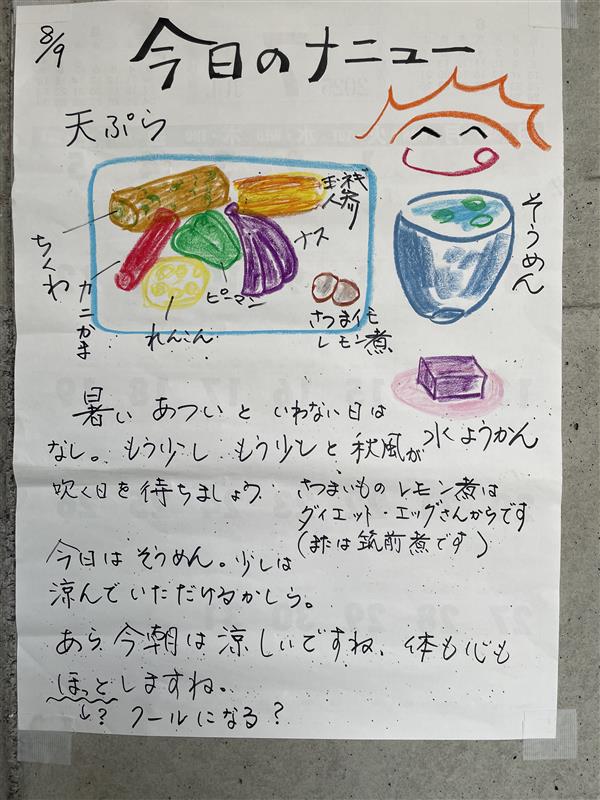 8/9
今日のナニュー
天ぷら
玉ネギ
人参
ナス
そうめん
ちくわ
カニかま
れんこん
ピーマン
さつまイモ
レモン煮
水ようかん
暑い あついと いわない日は
なし。もう少し もう少しと 秋風が
吹く日を待ちましょう
さつまいもの レモン煮は
ダイエット・エッグさんからです
(または筑前煮です)
今日は そうめん。少しは
涼んでいただけるかしら。
あら 今朝は涼しいですね、体も心も
ほっとしますね。
↓? クールになる?